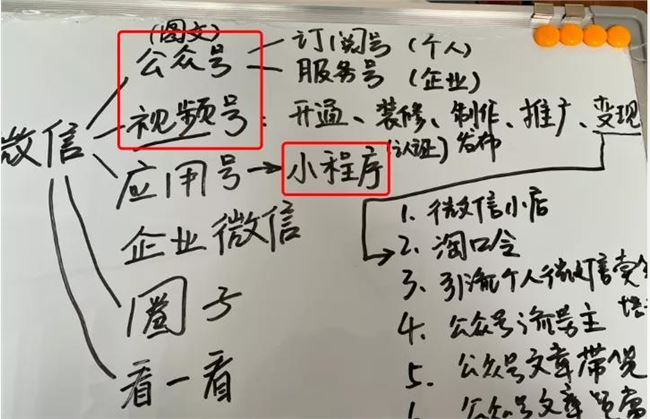 (图文)
公众号 订阅号 (个人)
服务号 (企业)
视频号: 开通、装修、制作、推广、变现
(认证) 发布
微信
应用号→小程序
企业微信
圈子
看一看
1. 微信小店
2. 淘口令
3. 引流个人微信卖
4. 公众号流量主
5. 公众号文章带货
公众号文章